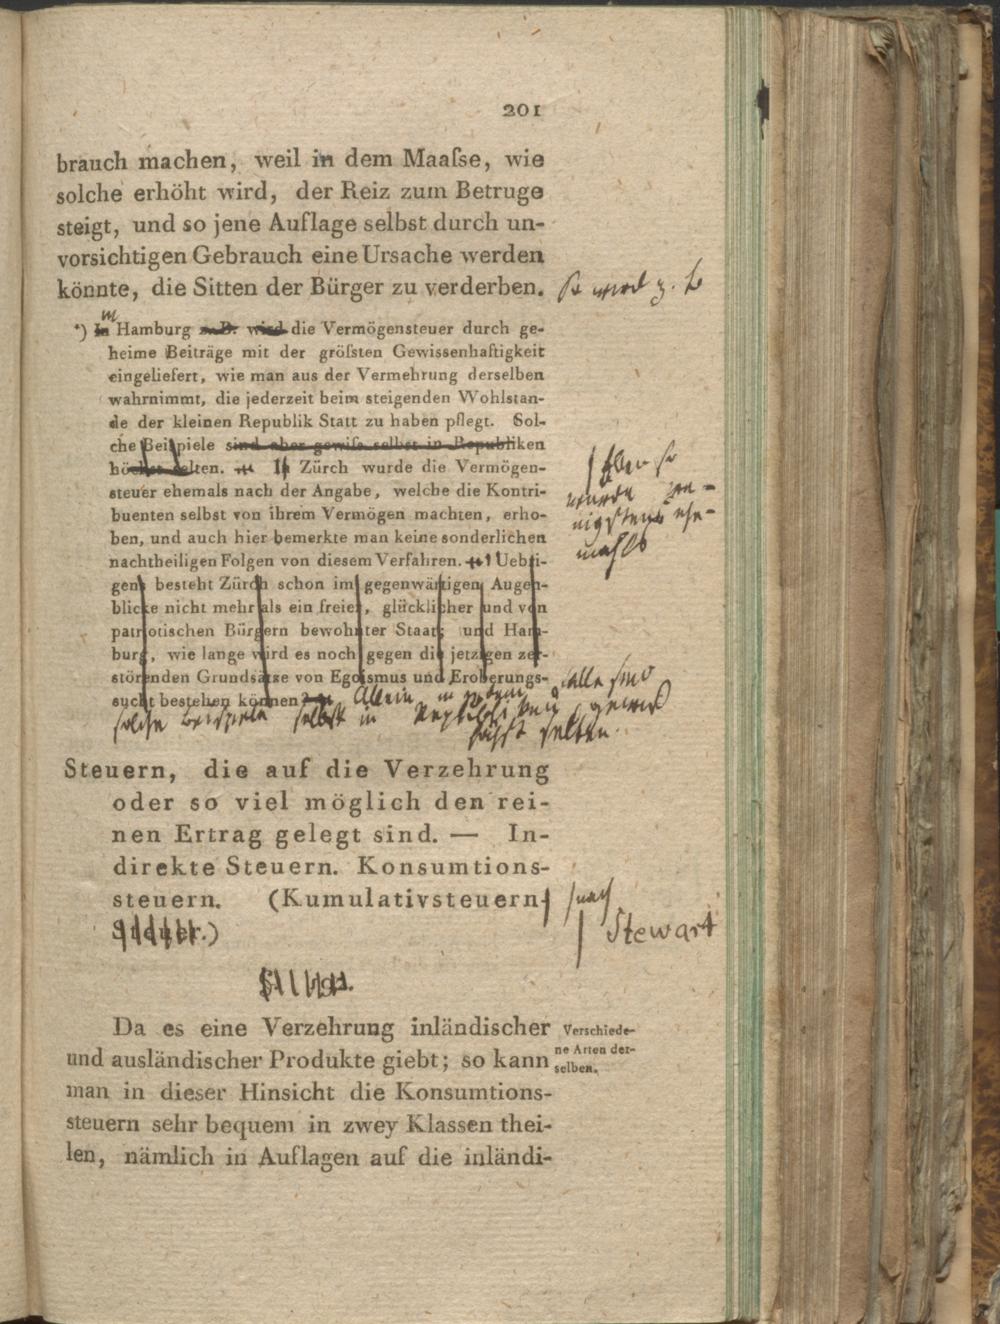 201
brauch machen, weil in dem Maaſse, wie
solche erhöht wird, der Reiz zum Betruge
steigt, und so jene Auflage selbst durch un-
vorsichtigen Gebrauch eine Ursache werden
könnte, die Sitten der Bürger zu verderben.
So wird z. B
in
*) In Hamburg z. B. wird die Vermögensteuer durch ge-
heime Beiträge mit der gröſsten Gewissenhaftigkeit
eingeliefert, wie man aus der Vermehrung derselben
wahrnimmt, die jederzeit beim steigenden Wohlstan-
de der kleinen Republik Statt zu haben pflegt. Sol-
che Beispiele sind aber gewiſs selbst in Republiken
höchst selten. In Zürch wurde die Vermögen-
steuer ehemals nach der Angabe, welche die Kontri-
buenten selbst von ihrem Vermögen machten, erho-
ben, und auch hier bemerkte man keine sonderlichen
nachtheiligen Folgen von diesem Verfahren. Uebri-
gens besteht Zürch schon im gegenwärtigen Augen-
blicke nicht mehr als ein freier, glücklicher und von
patriotischen Bürgern bewohnter Staat; und Ham-
burg, wie lange wird es noch gegen die jetzigen zer-
störenden Grundsätze von Egoismus und Eroberungs-
sucht bestehen können?
Eben so
wurde we-
nigstens ehe-
mahls
Allein
solche Beispiele selbst in Republiken gewiß
höchst selten.
Steuern, die auf die Verzehrung
oder so viel möglich den rei-
nen Ertrag gelegt sind. — In-
direkte Steuern. Konsumtions-
steuern. (Kumulativsteuern
nach
Stewart
Da es eine Verzehrung inländischer
und ausländischer Produkte giebt; so kann
man in dieser Hinsicht die Konsumtions-
steuern sehr bequem in zwey Klassen thei-
len, nämlich in Auflagen auf die inländi-
Verschiede-
ne Arten der-
selben.